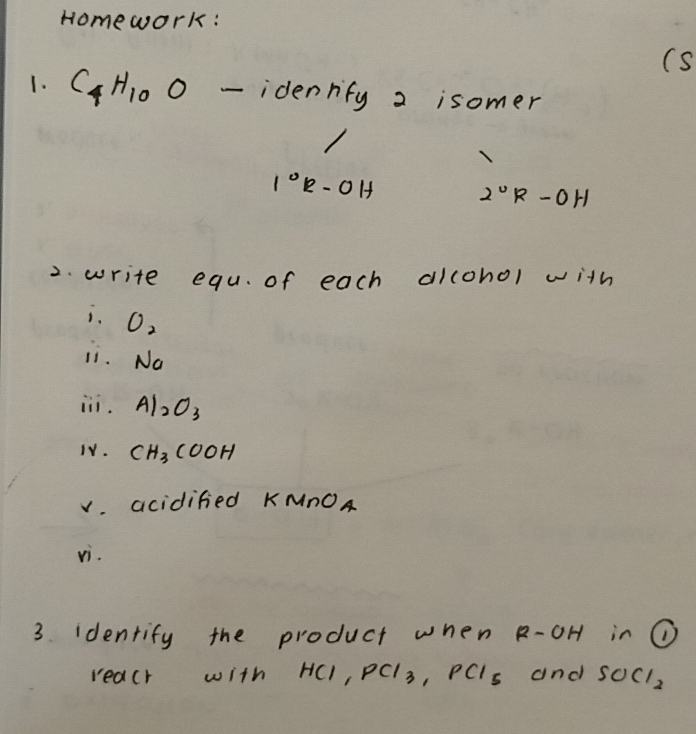 Homework:
(S
1. C₄H₁₀O - identify 2 isomer
1°R-OH 2°R-OH
2. write equ. of each alcohol with
i. O₂
ii. Na
iii. Al₂O₃
iv. CH₃COOH
v. acidified KMnO₄
vi.
3. identify the product when R-OH in ①
react with HCl, PCl₃, PCl₅ and SOCl₂